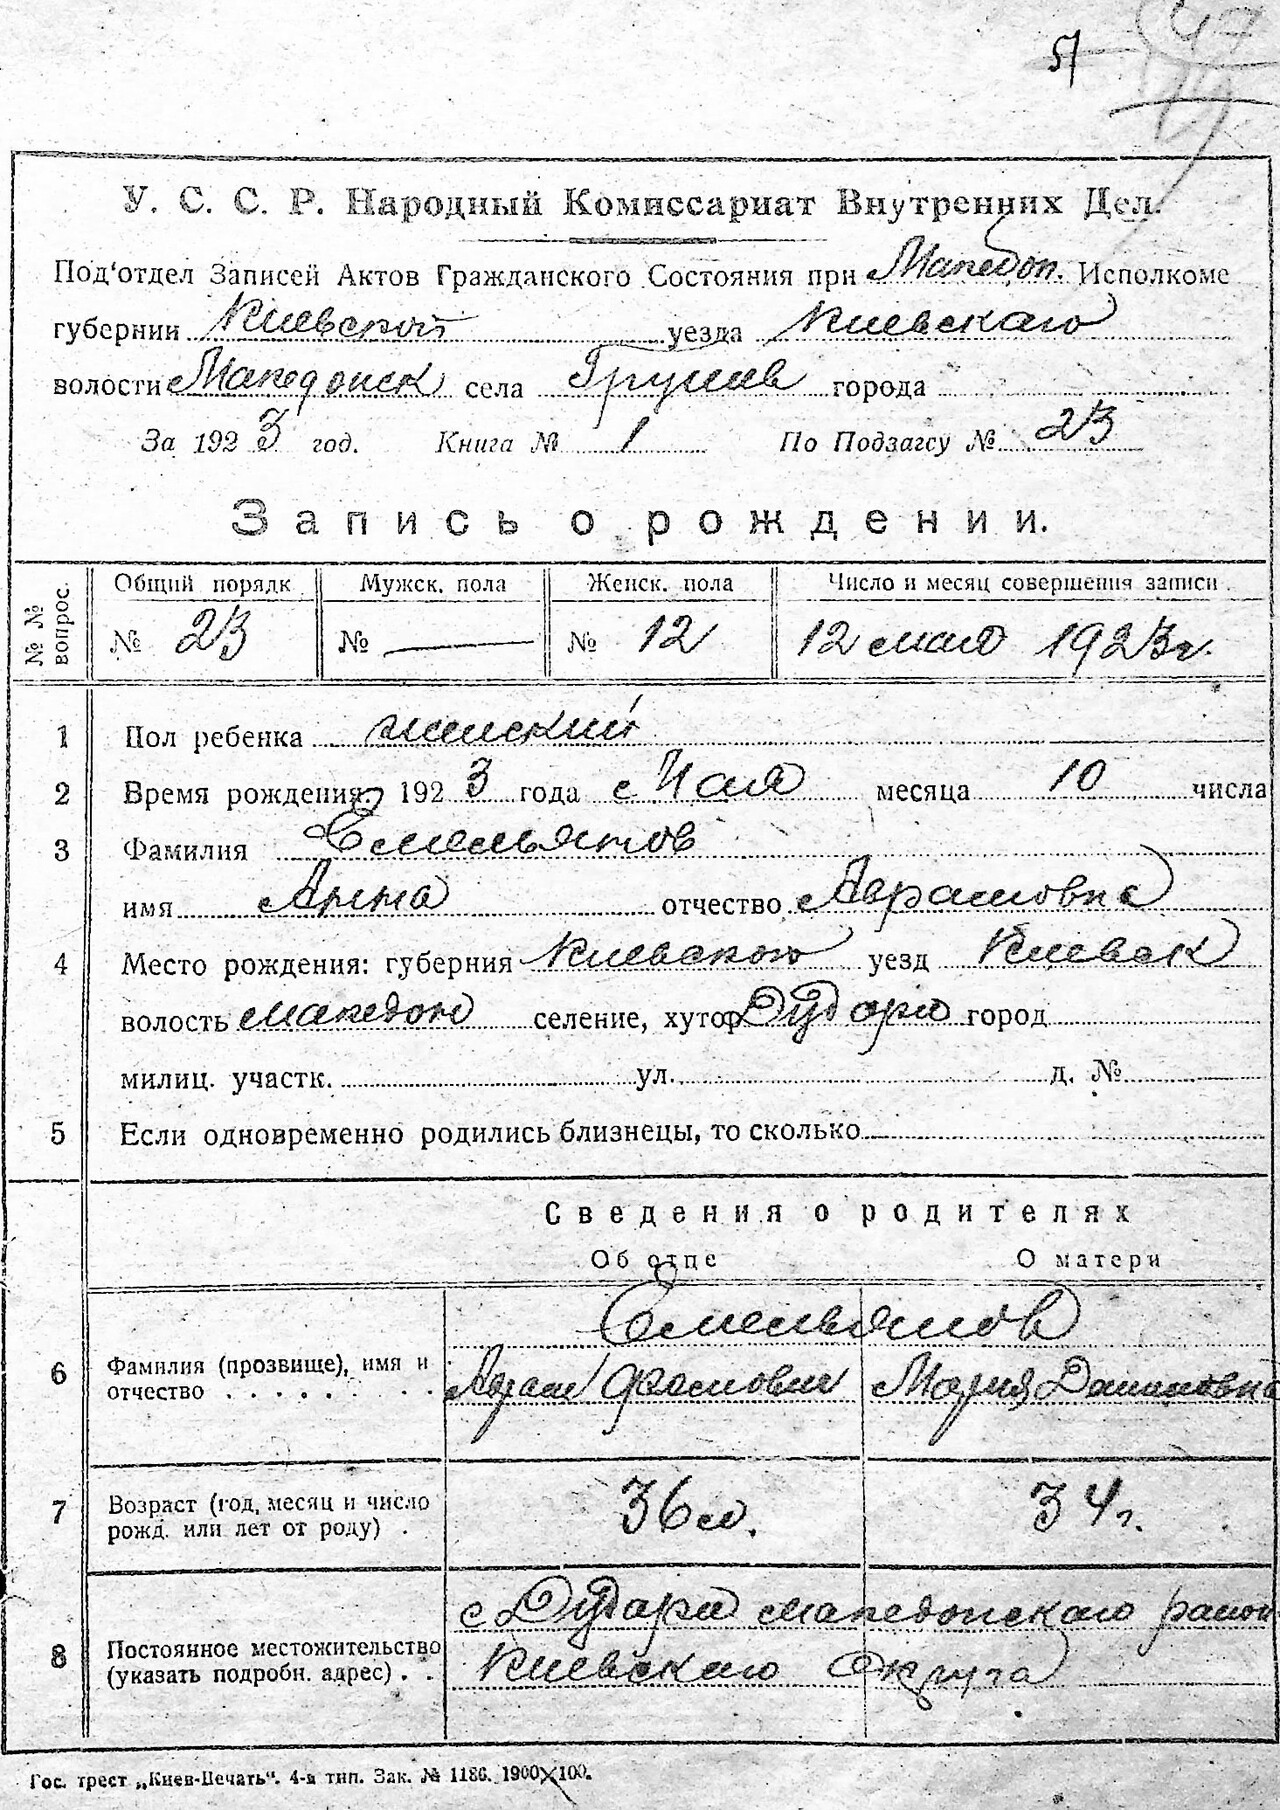 57
У. С. С. Р. Народный Комиссариат Внутренних Дел.
Под'отдел Записей Актов Гражданского Состояния при Македон. Исполкоме
губернии Киевской уезда Киевскаго
волости Македонск села Грушев города
За 1923 год. Книга № 1 По Подзагсу № 23
Запись о рождении.
№ № вопрос. Общий порядк Мужск. пола Женск. пола Число и месяц совершения записи.
№ 23 № — № 12 12 мая 1923 г.
1 Пол ребенка женский
2 Время рождения: 1923 года с Мая месяца 10 числа
3 Фамилия Емельянов
имя Анна отчество Аврамовна
4 Место рождения: губерния Киевского уезд Киевск
волость Македон селение, хутор Дудари город
милиц. участк. ул. д. №
5 Если одновременно родились близнецы, то сколько
Сведения о родителях
Об отце О матери
Емельянов
6 Фамилия (прозвище), имя и
отчество . . . . . . . . Мария
7 Возраст (год, месяц и число
рожд. или лет от роду) . 36 л. 34 г.
с Дудари македонскаго район
8 Постоянное местожительство
(указать подробн. адрес) . . Киевскаго Округа
Гос. трест „Киев-Печать“. 4-я тип. Зак. № 1186. 1900×100.